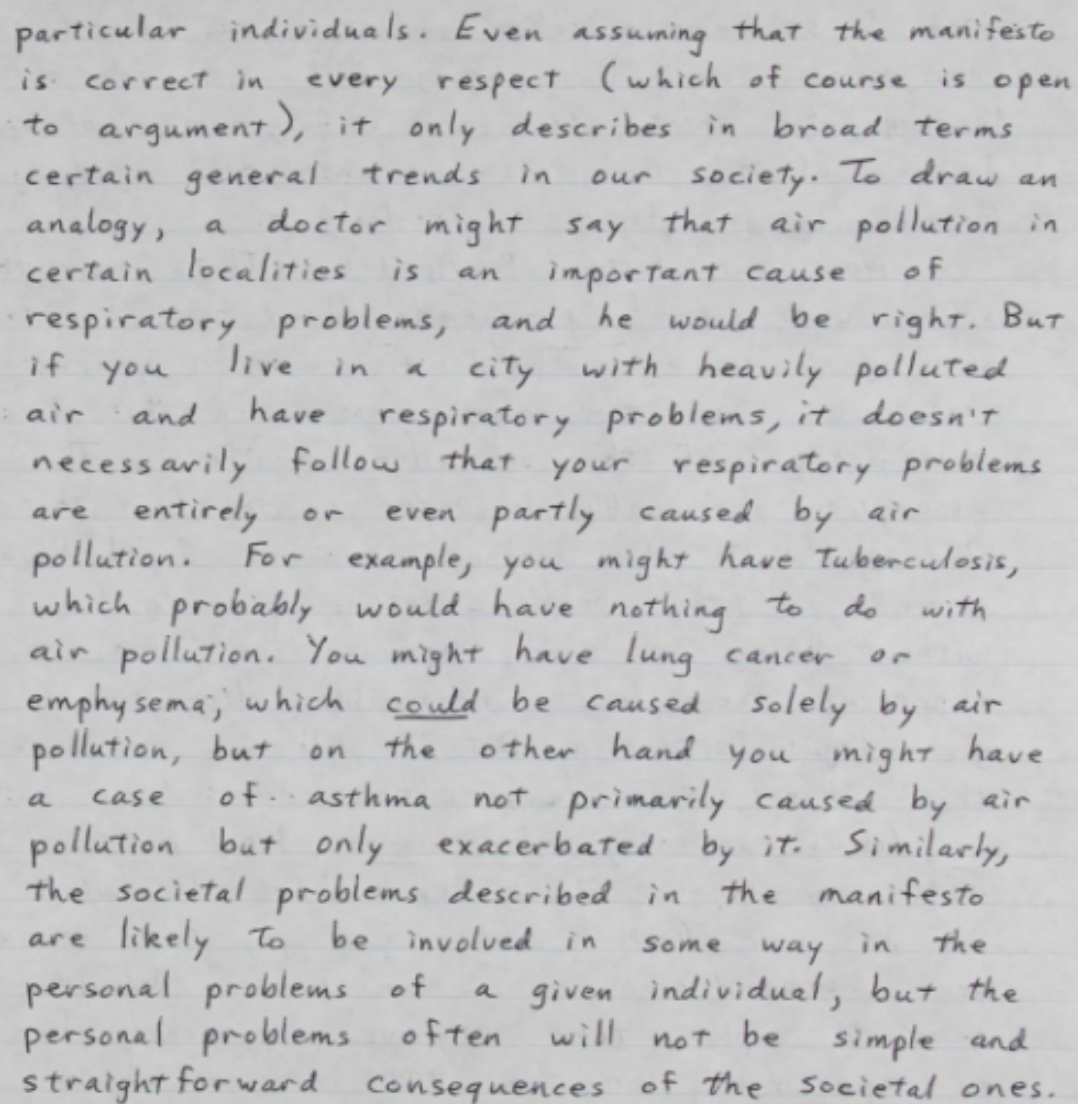 particular individuals. Even assuming that the manifesto
is correct in every respect (which of course is open
to argument), it only describes in broad terms
certain general trends in our society. To draw an
analogy, a doctor might say that air pollution in
certain localities is an important cause of
respiratory problems, and he would be right. But
if you live in a city with heavily polluted
air and have respiratory problems, it doesn't
necessarily follow that your respiratory problems
are entirely or even partly caused by air
pollution. For example, you might have tuberculosis,
which probably would have nothing to do with
air pollution. You might have lung cancer or
emphysema, which could be caused solely by air
pollution, but on the other hand you might have
a case of asthma not primarily caused by air
pollution but only exacerbated by it. Similarly,
the societal problems described in the manifesto
are likely to be involved in some way in the
personal problems of a given individual, but the
personal problems often will not be simple and
straightforward consequences of the societal ones.